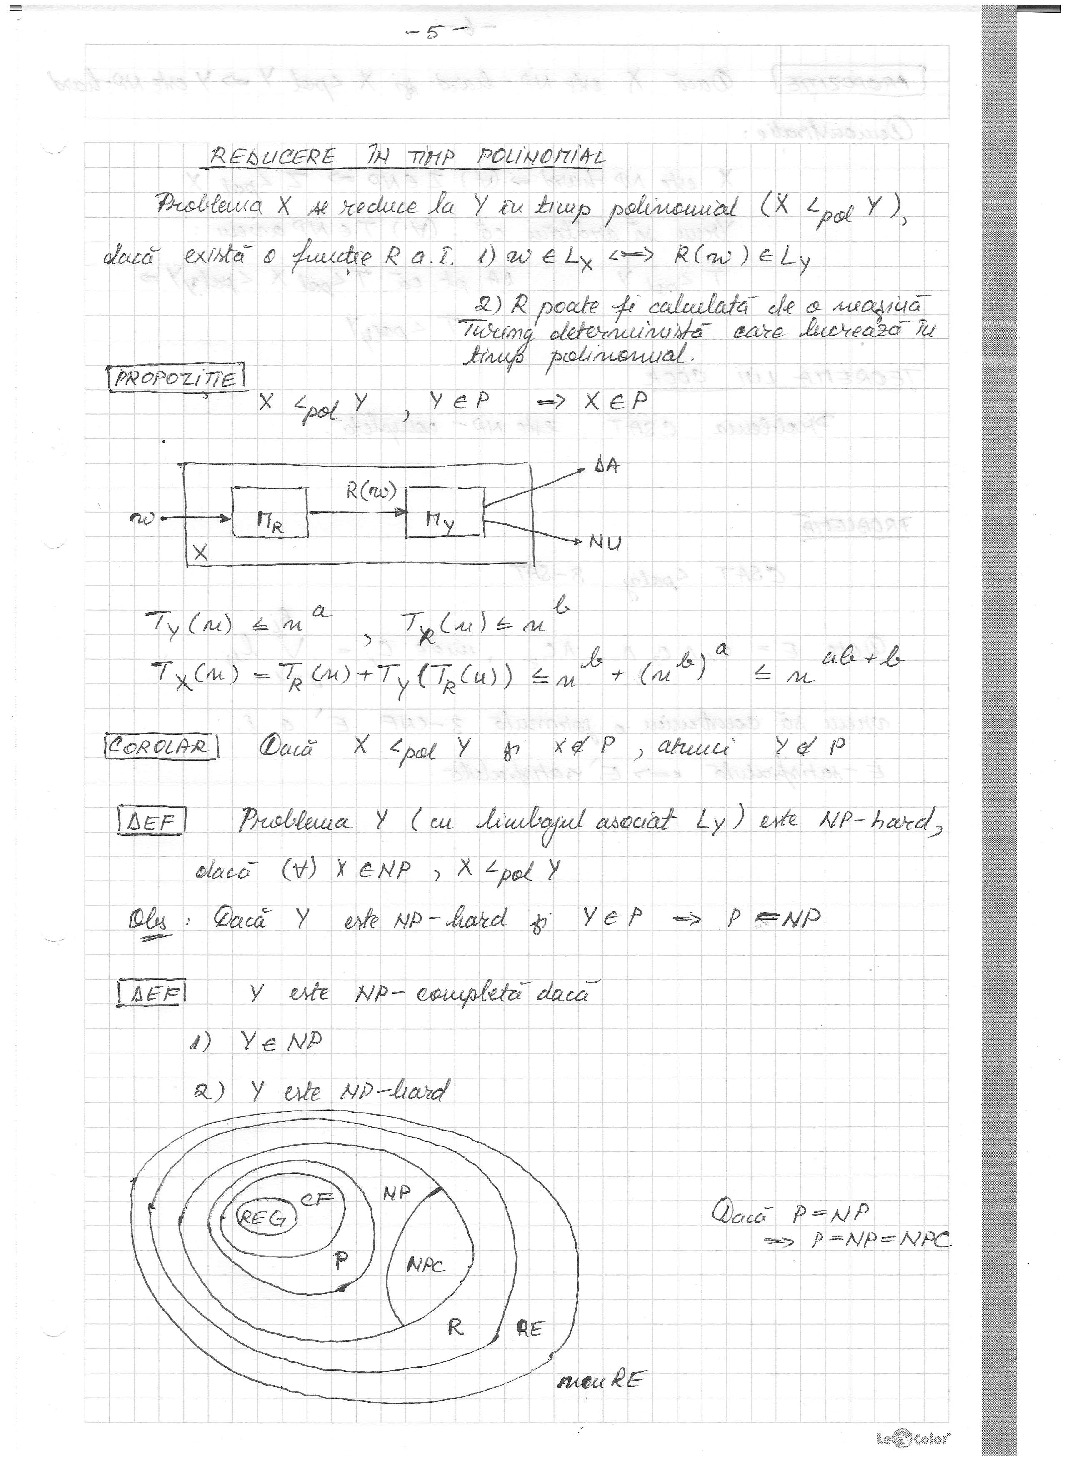 - 5 -
REDUCERE ÎN TIMP POLINOMIAL
Problema X se reduce la Y în timp polinomial (X <pol Y),
dacă există o funcție R a.î. 1) w ∈ LX <=> R(w) ∈ LY
2) R poate fi calculată de o mașină
Turing deterministă care lucrează în
timp polinomial.
PROPOZIȚIE
X <pol Y , Y ∈ P => X ∈ P
w MR R(w) MY DA
X NU
TY(n) ≤ n^a , TR(n) ≤ n^b
TX(n) = TR(n) + TY(TR(n)) ≤ n^b + (n^b)^a ≤ n^(ab+b)
COROLAR Dacă X <pol Y și X ∉ P , atunci Y ∉ P
DEF Problema Y (cu limbajul asociat LY) este NP-hard,
dacă (∀) X ∈ NP , X <pol Y
Obs : Dacă Y este NP-hard și Y ∈ P => P = NP
DEF Y este NP-completă dacă
1) Y ∈ NP
2) Y este NP-hard
REG CF P NP NPC R RE
non RE
Dacă P = NP
=> P = NP = NPC